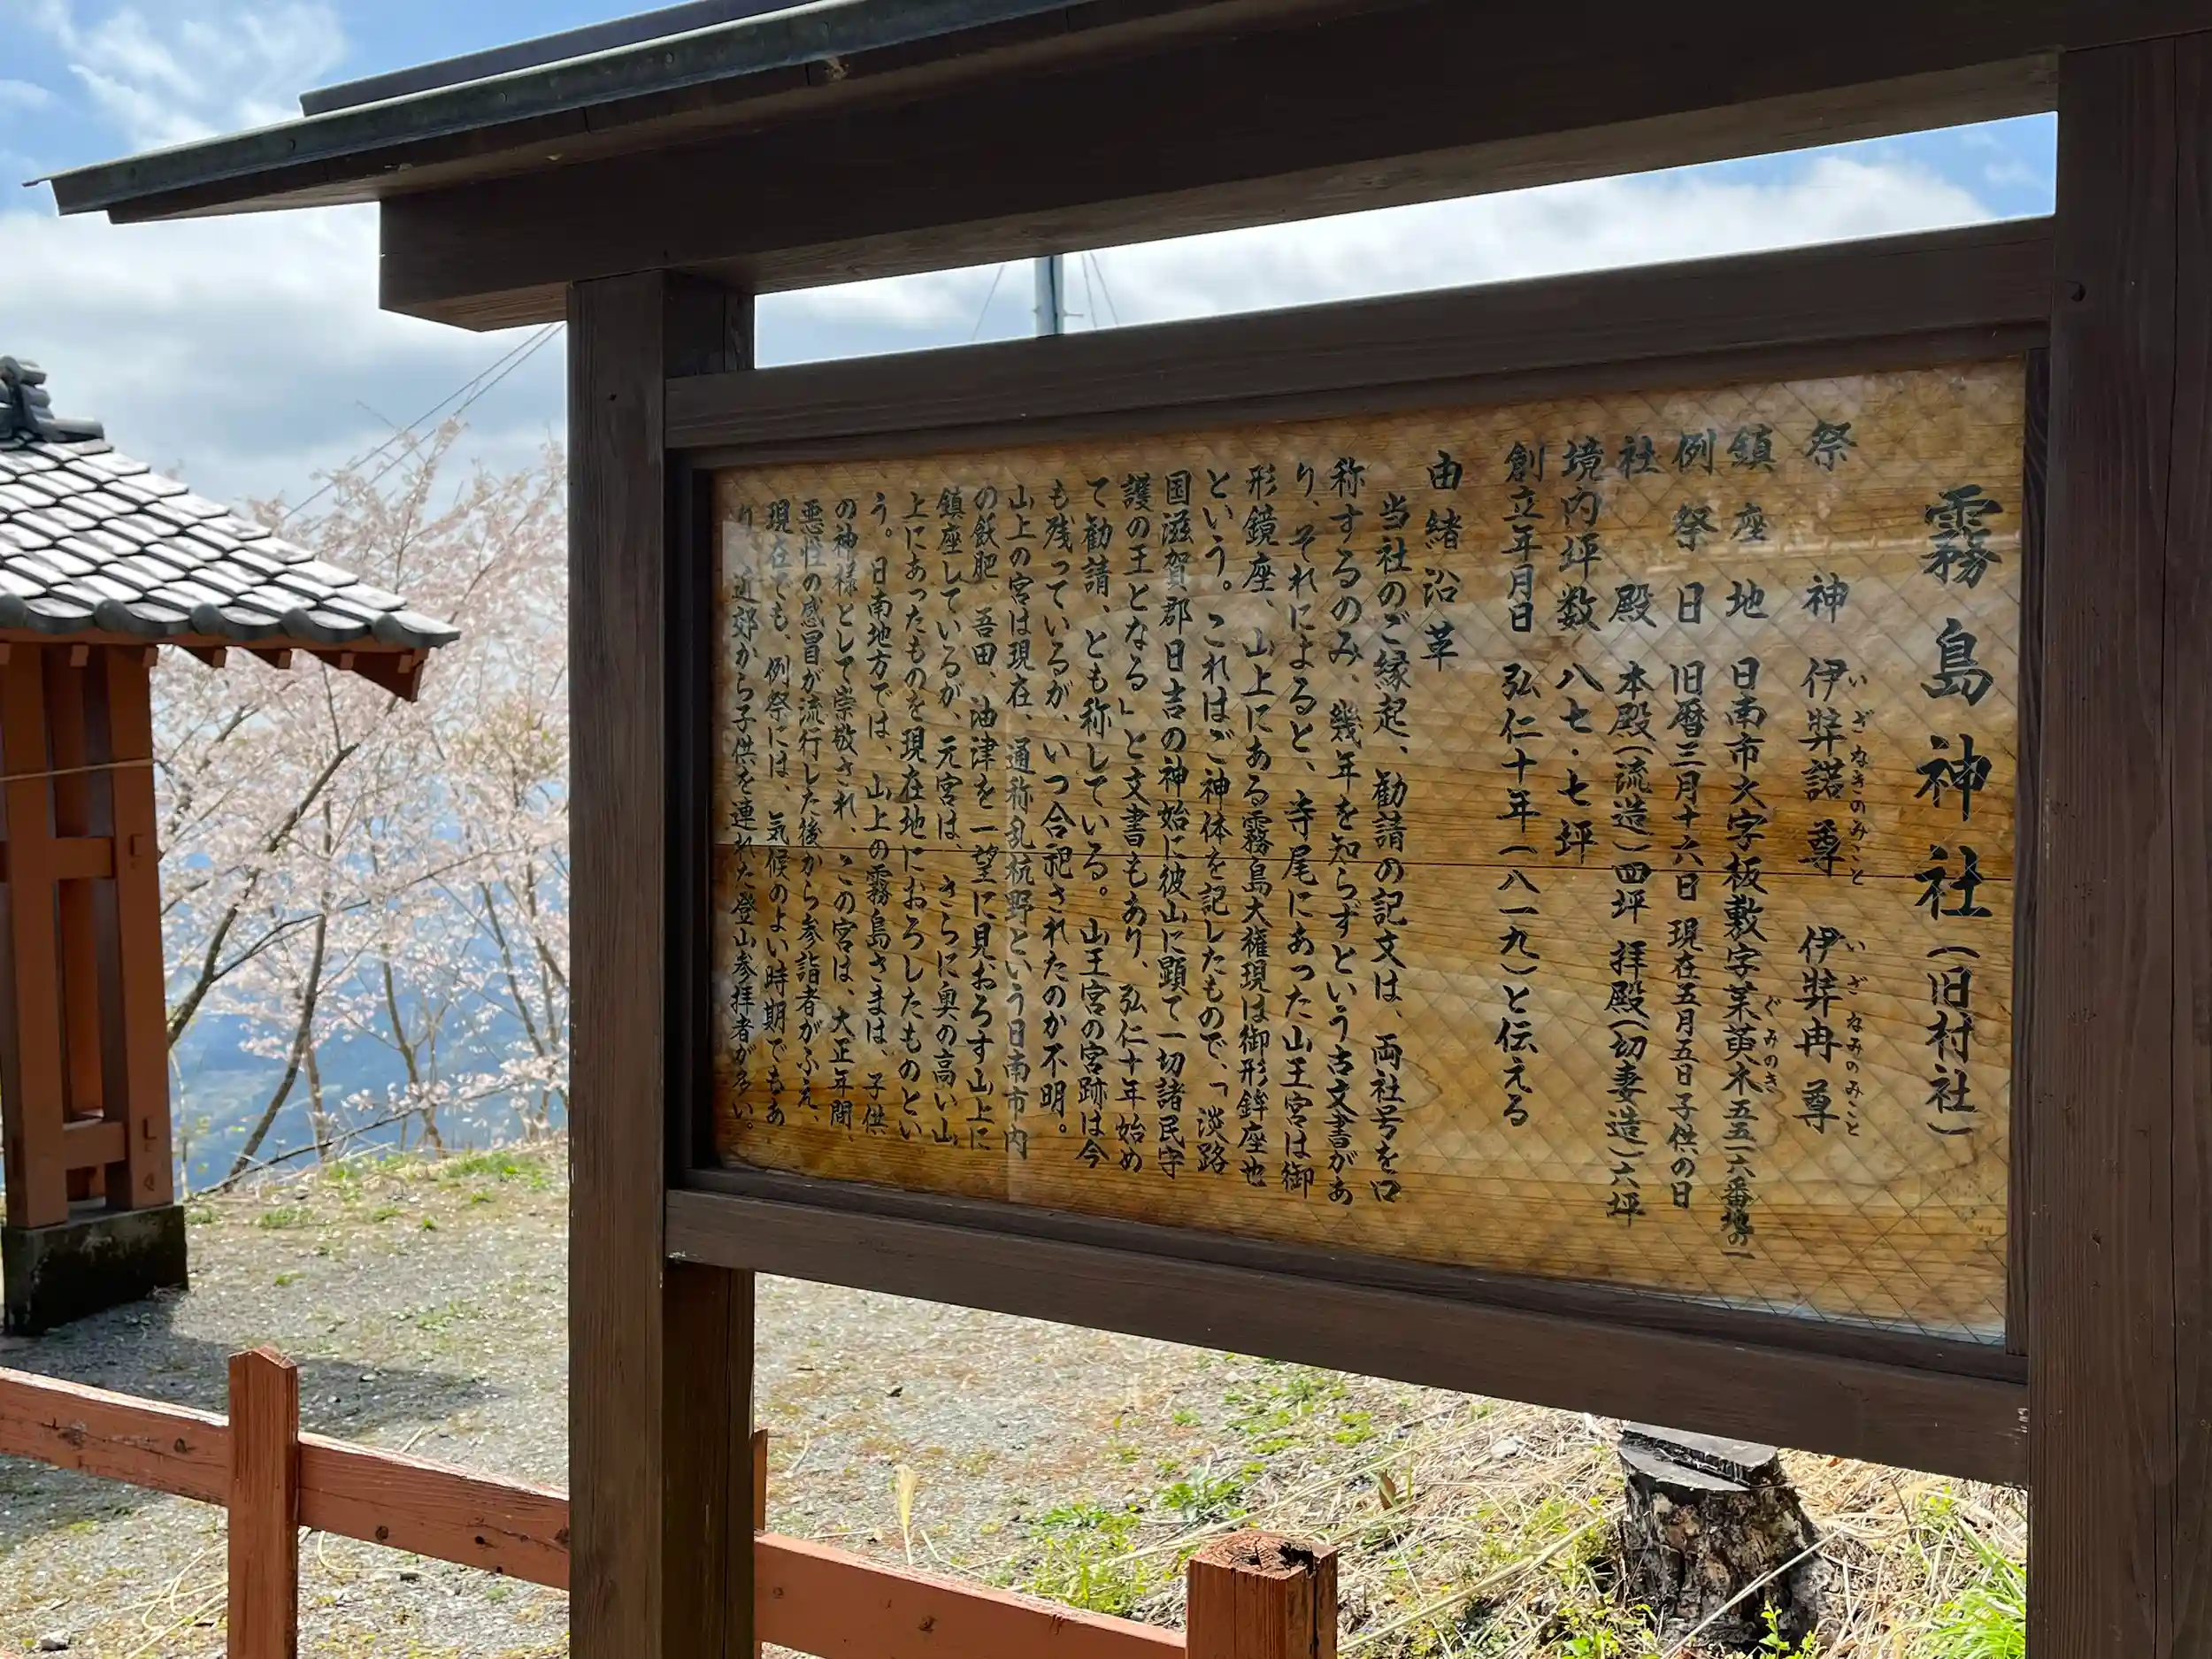 霧島神社(旧村社)
祭神 伊弉諾尊 伊弉冉尊
いざなきのみこと いざなみのみこと
鎮座地 日南市大字板敷字茱萸木五五一六番地の一
ぐみのき
例祭日 旧暦三月十六日 現在五月五日子供の日
社殿 本殿(流造)四坪 拝殿(切妻造)六坪
境内坪数 八七・七坪
創立年月日 弘仁十年(八一九)と伝える
由緒沿革
当社のご縁起、勧請の記文は、両社号を口
称するのみ、幾年を知らずという古文書があ
り、それによると、寺尾にあった山王宮は御
形鏡座、山上にある霧島大権現は御形鉾座也
という。これはご神体を記したもので、「淡路
国滋賀郡日吉の神始に彼山に顕て一切諸民守
護の王となる」と文書もあり、弘仁十年始め
て勧請、とも称している。山王宮の宮跡は今
も残っているが、いつ合祀されたのか不明。
山上の宮は現在、通称乱杭野という日南市内
の飫肥、吾田、油津を一望に見おろす山上に
鎮座しているが、元宮は、さらに奥の高い山
上にあったものを現在地におろしたものとい
う。日南地方では、山上の霧島さまは、子供
の神様として崇敬され、この宮は、大正年間、
悪性の感冒が流行した後から参詣者がふえ、
現在でも、例祭には、気候のよい時期でもあ
り、近郊から子供を連れた登山参拝者が多い。